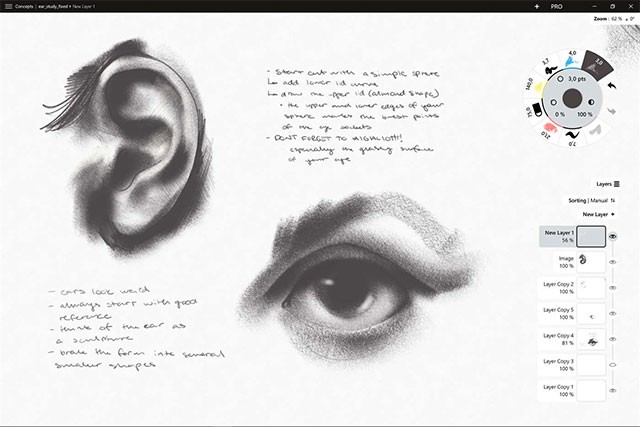 Concepts | ear_study_fixed • New Layer 1
+ PRO
Zoom: 62 % 0°
4,0
3,0
3,7
140,0
15,0
21,0
7,0
3,0 pts
0 % 100 %
- Start out with a simple sphere
add lower lid curve
draw the upper lid (almond shape)
• the upper and lower edges of your
sphere marks the points
of the eye sockets
- DONT FORGET TO HIGHLIGHT!!
especially the surface
of your eye
Layers
Sorting | Manual
New Layer +
New Layer 1
56 %
Image
100 %
Layer Copy 2
100 %
Layer Copy 5
100 %
Layer Copy 4
81 %
Layer Copy 3
100 %
Layer Copy 1
100 %
- ears look weird
- always start with good
reference
- think of the ear as
a sculpture
- brake the form into several
smaller shapes